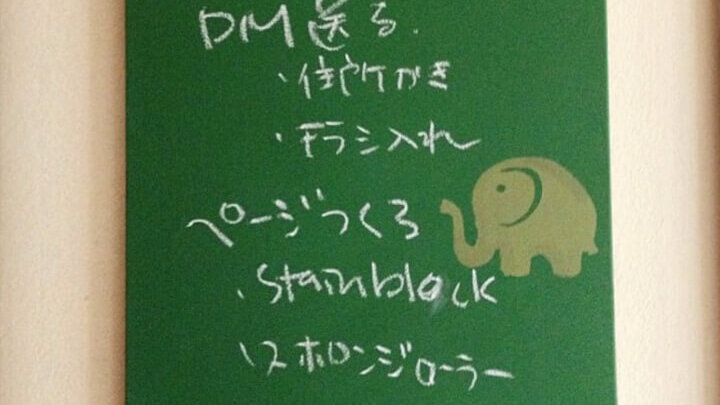 DM送る.
・住所かき
・チラシ入れ
ページつくる
・Stainblock
・スポンジローラー